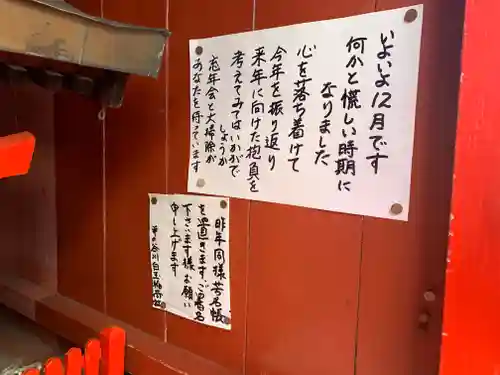 いよいよ12月です
何かと慌しい時期に
なりました
心を落ち着けて
今年を振り返り
来年に向けた抱負を
考えてみてはいかがで
しょうか
忘年会と大掃除が
あなたを待っています
昨年同様芳名帳
を置きます、ご署名
下さいます様お願い
申し上げます